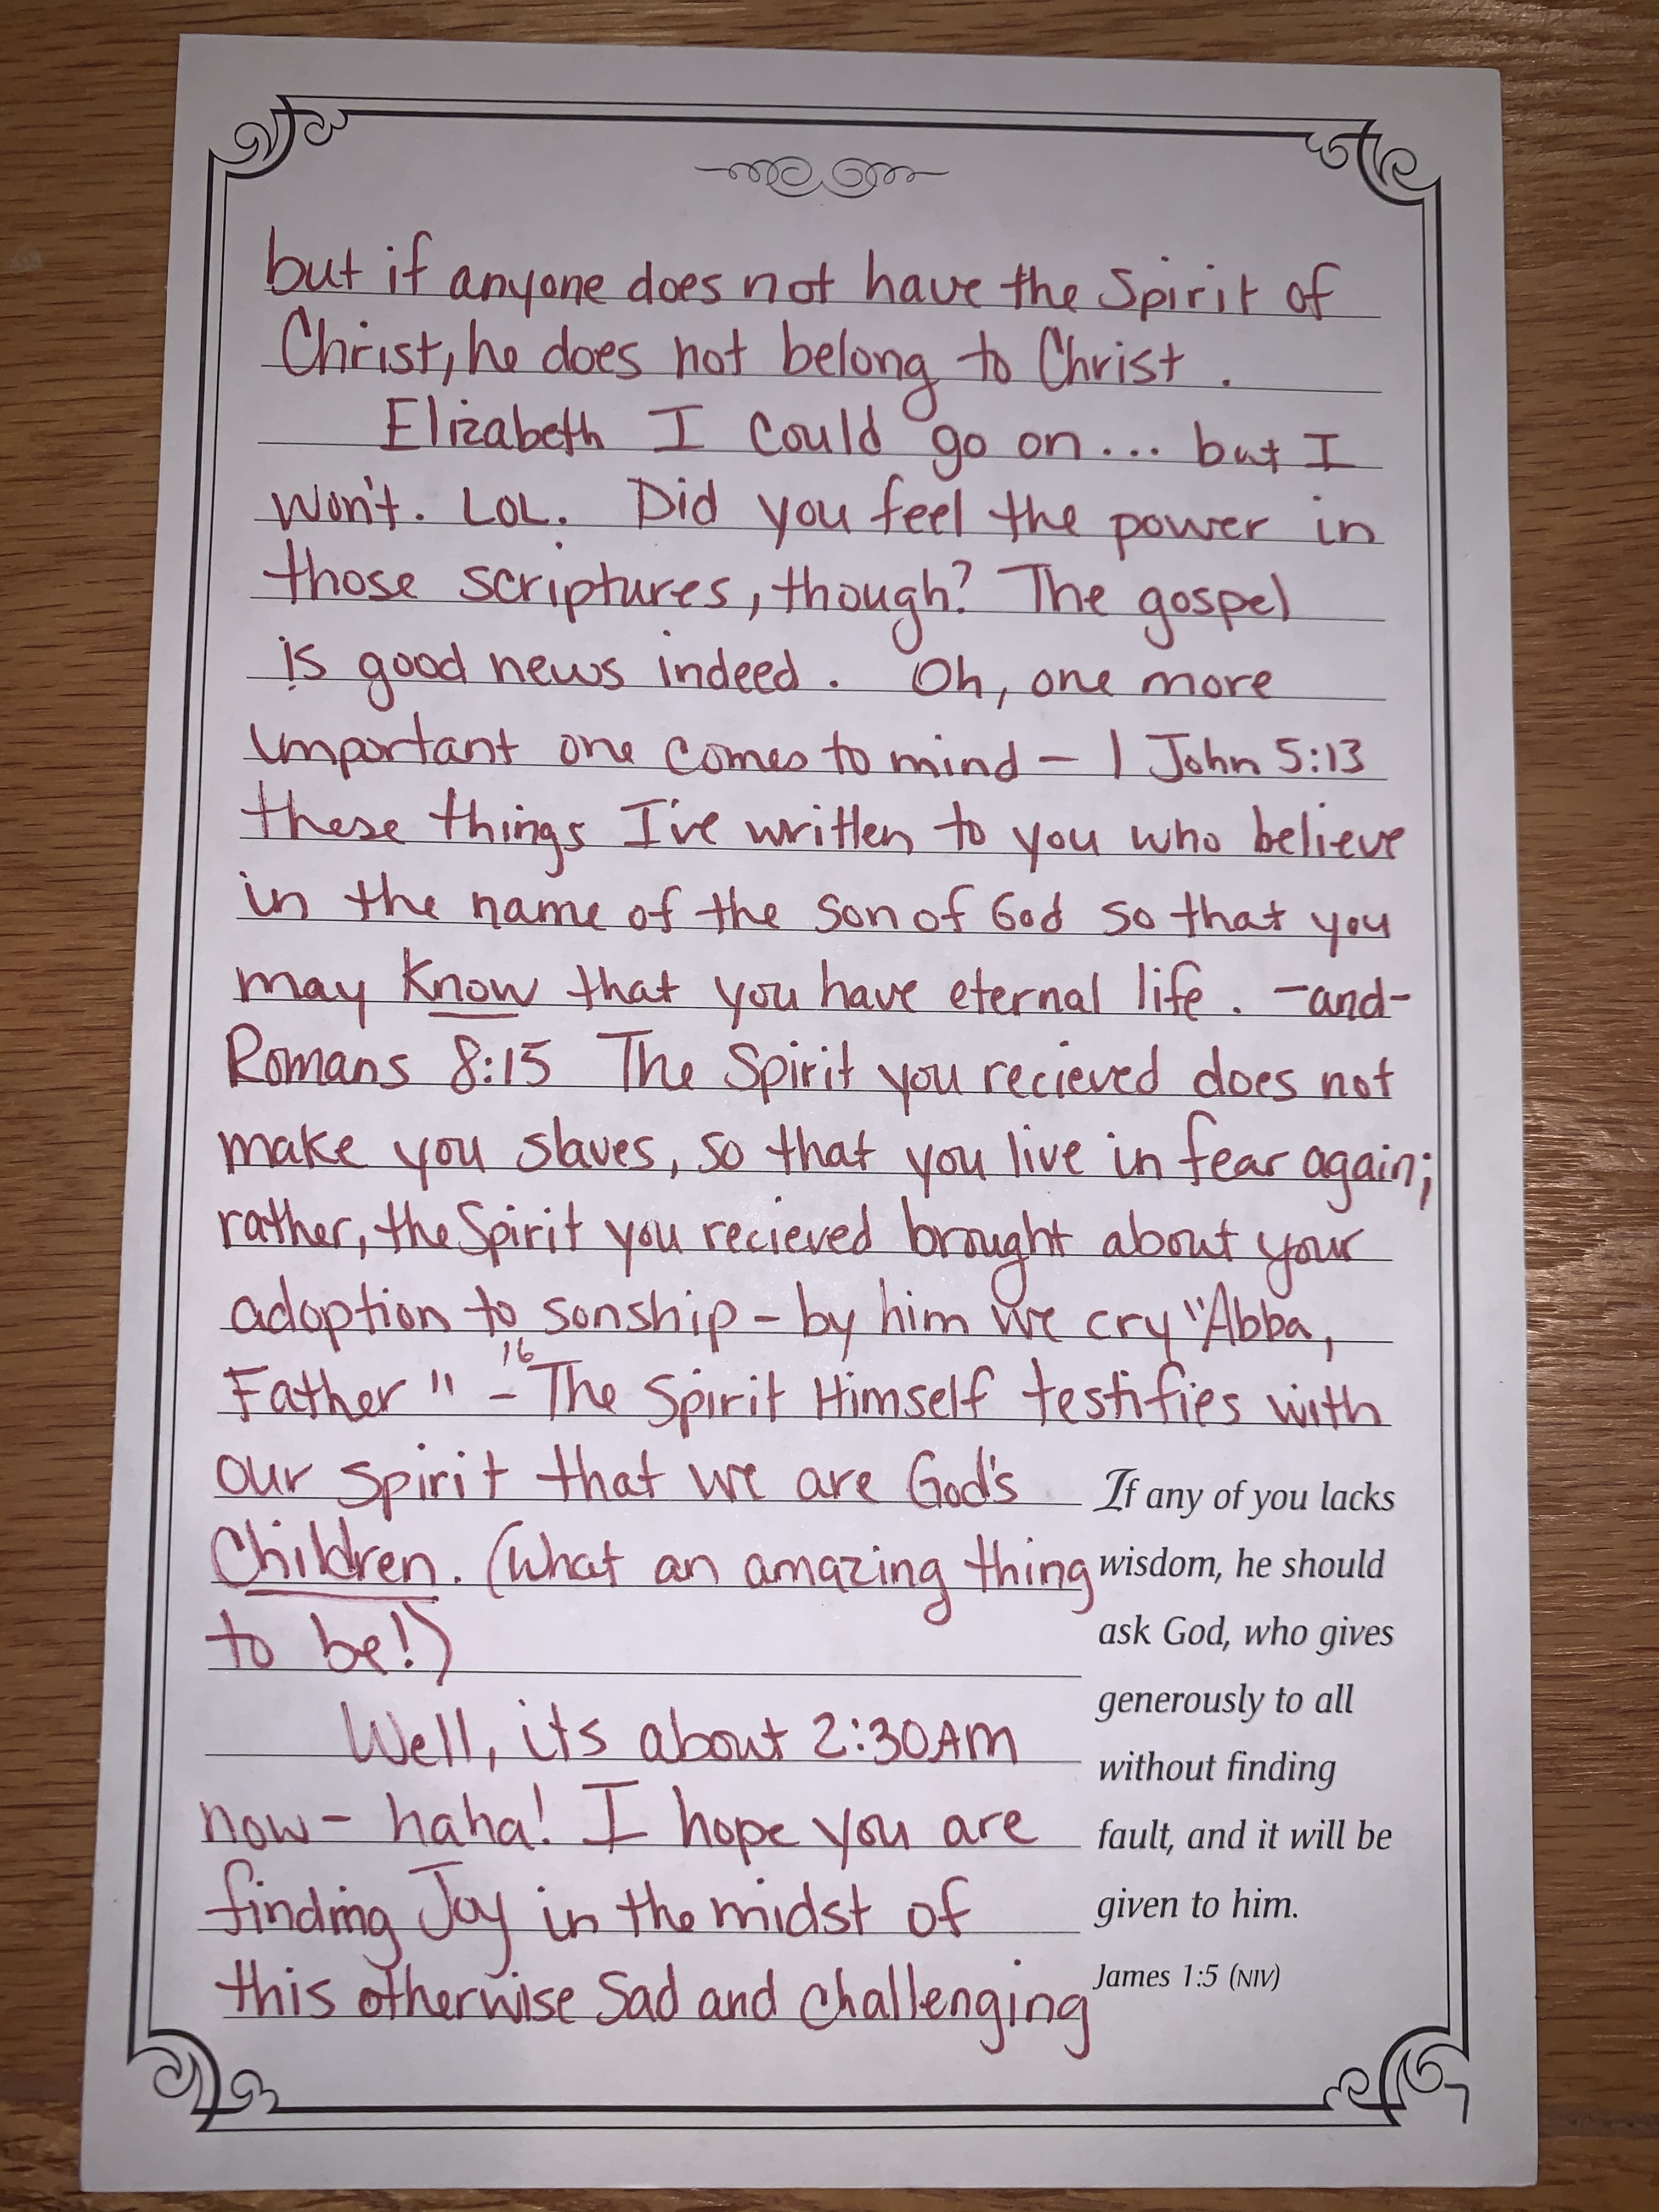 but if anyone does not have the Spirit of
Christ, he does not belong to Christ.
Elizabeth I could go on... but I
won't. LOL. Did you feel the power in
those scriptures, though? The gospel
is good news indeed. Oh, one more
important one comes to mind - 1 John 5:13
these things I've written to you who believe
in the name of the son of God so that you
may know that you have eternal life. -and-
Romans 8:15 The Spirit you recieved does not
make you slaves, so that you live in fear again;
rather, the Spirit you recieved brought about your
adoption to sonship - by him we cry "Abba,
Father" - 16 The Spirit Himself testifies with
our spirit that we are God's
Children. (What an amazing thing
to be!)
Well, its about 2:30AM
now - haha! I hope you are
finding Joy in the midst of
this otherwise sad and challenging
If any of you lacks
wisdom, he should
ask God, who gives
generously to all
without finding
fault, and it will be
given to him.
James 1:5 (NIV)
7